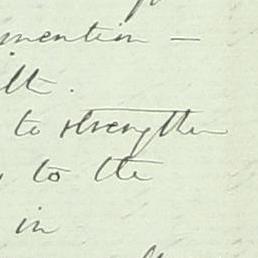 mention —
to strengthen
to the
in